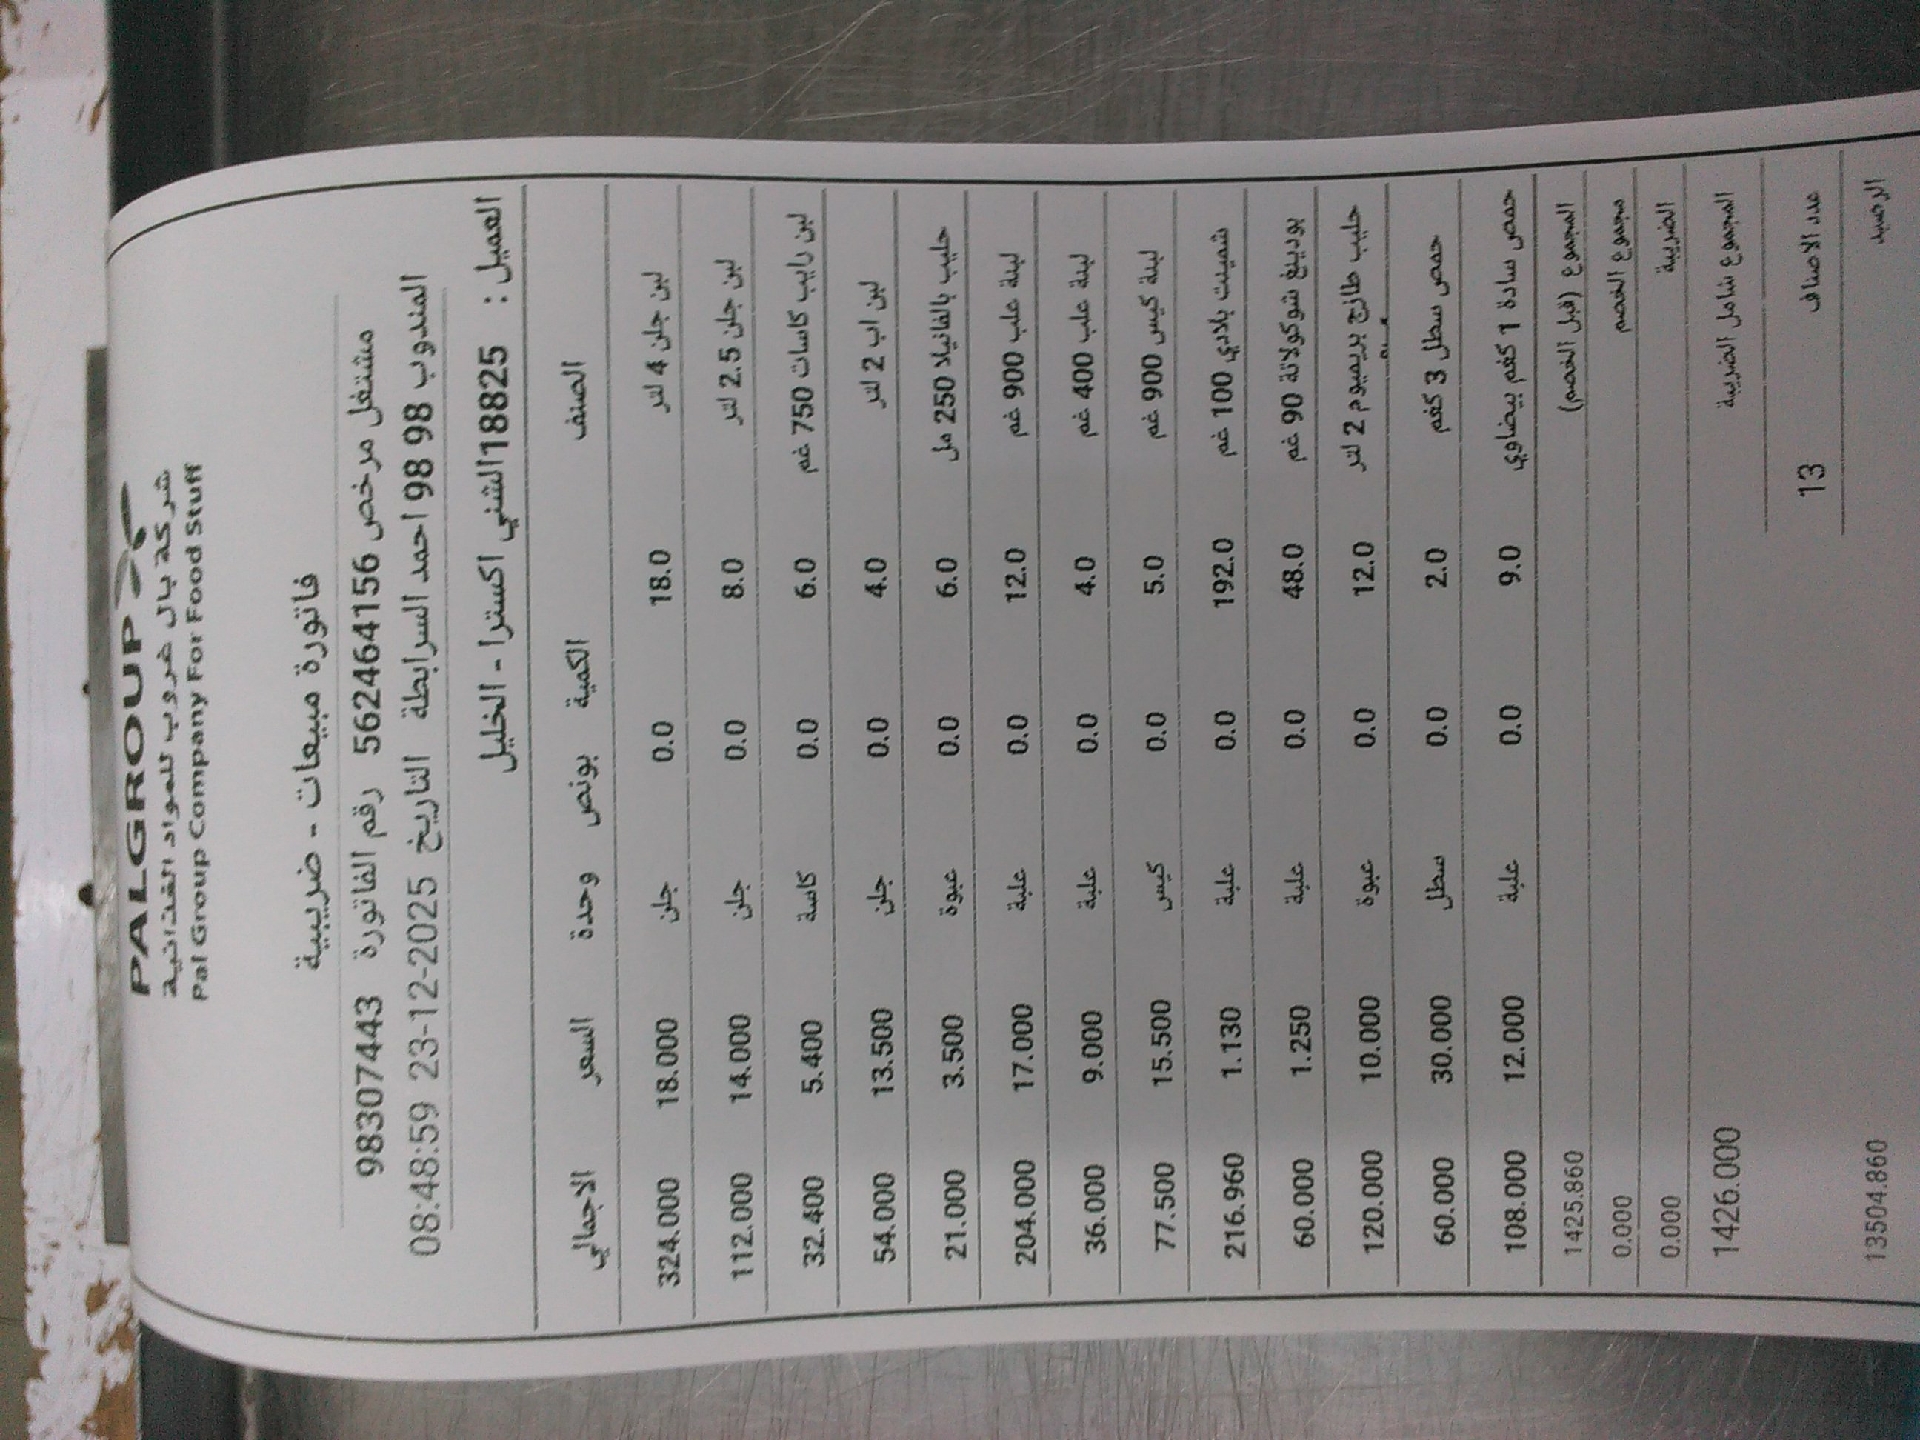 PALGROUP
شركة بال غروب للمواد الغذائية
Pal Group Company For Food Stuff
فاتورة مبيعات - ضريبية
مشتغل مرخص 562464156 رقم الفاتورة 98307443
المندوب 98 98 احمد السرابطة التاريخ 23-12-2025 08:48:59
العميل : 18825الشني اكسترا - الخليل
الصنف الكمية بونص وحدة السعر الاجمالي
لبن جلن 4 لتر 18.0 0.0 جلن 18.000 324.000
لبن جلن 2.5 لتر 8.0 0.0 جلن 14.000 112.000
لبن رايب كاسات 750 غم 6.0 0.0 كاسة 5.400 32.400
لبن اب 2 لتر 4.0 0.0 جلن 13.500 54.000
حليب بالفانيلا 250 مل 6.0 0.0 عبوة 3.500 21.000
لبنة علب 900 غم 12.0 0.0 علبة 17.000 204.000
لبنة علب 400 غم 4.0 0.0 علبة 9.000 36.000
لبنة كيس 900 غم 5.0 0.0 كيس 15.500 77.500
شمينت بلادي 100 غم 192.0 0.0 علبة 1.130 216.960
بودينغ شوكولاتة 90 غم 48.0 0.0 علبة 1.250 60.000
حليب طازج بريميوم 2 لتر 12.0 0.0 عبوة 10.000 120.000
حمص سطل 3 كغم 2.0 0.0 سطل 30.000 60.000
حمص سادة 1 كغم بيضاوي 9.0 0.0 علبة 12.000 108.000
المجموع (قبل الخصم) 1425.860
مجموع الخصم 0.000
الضريبة 0.000
المجموع شامل الضريبة 1426.000
عدد الاصناف 13
الرصيد 13504.860